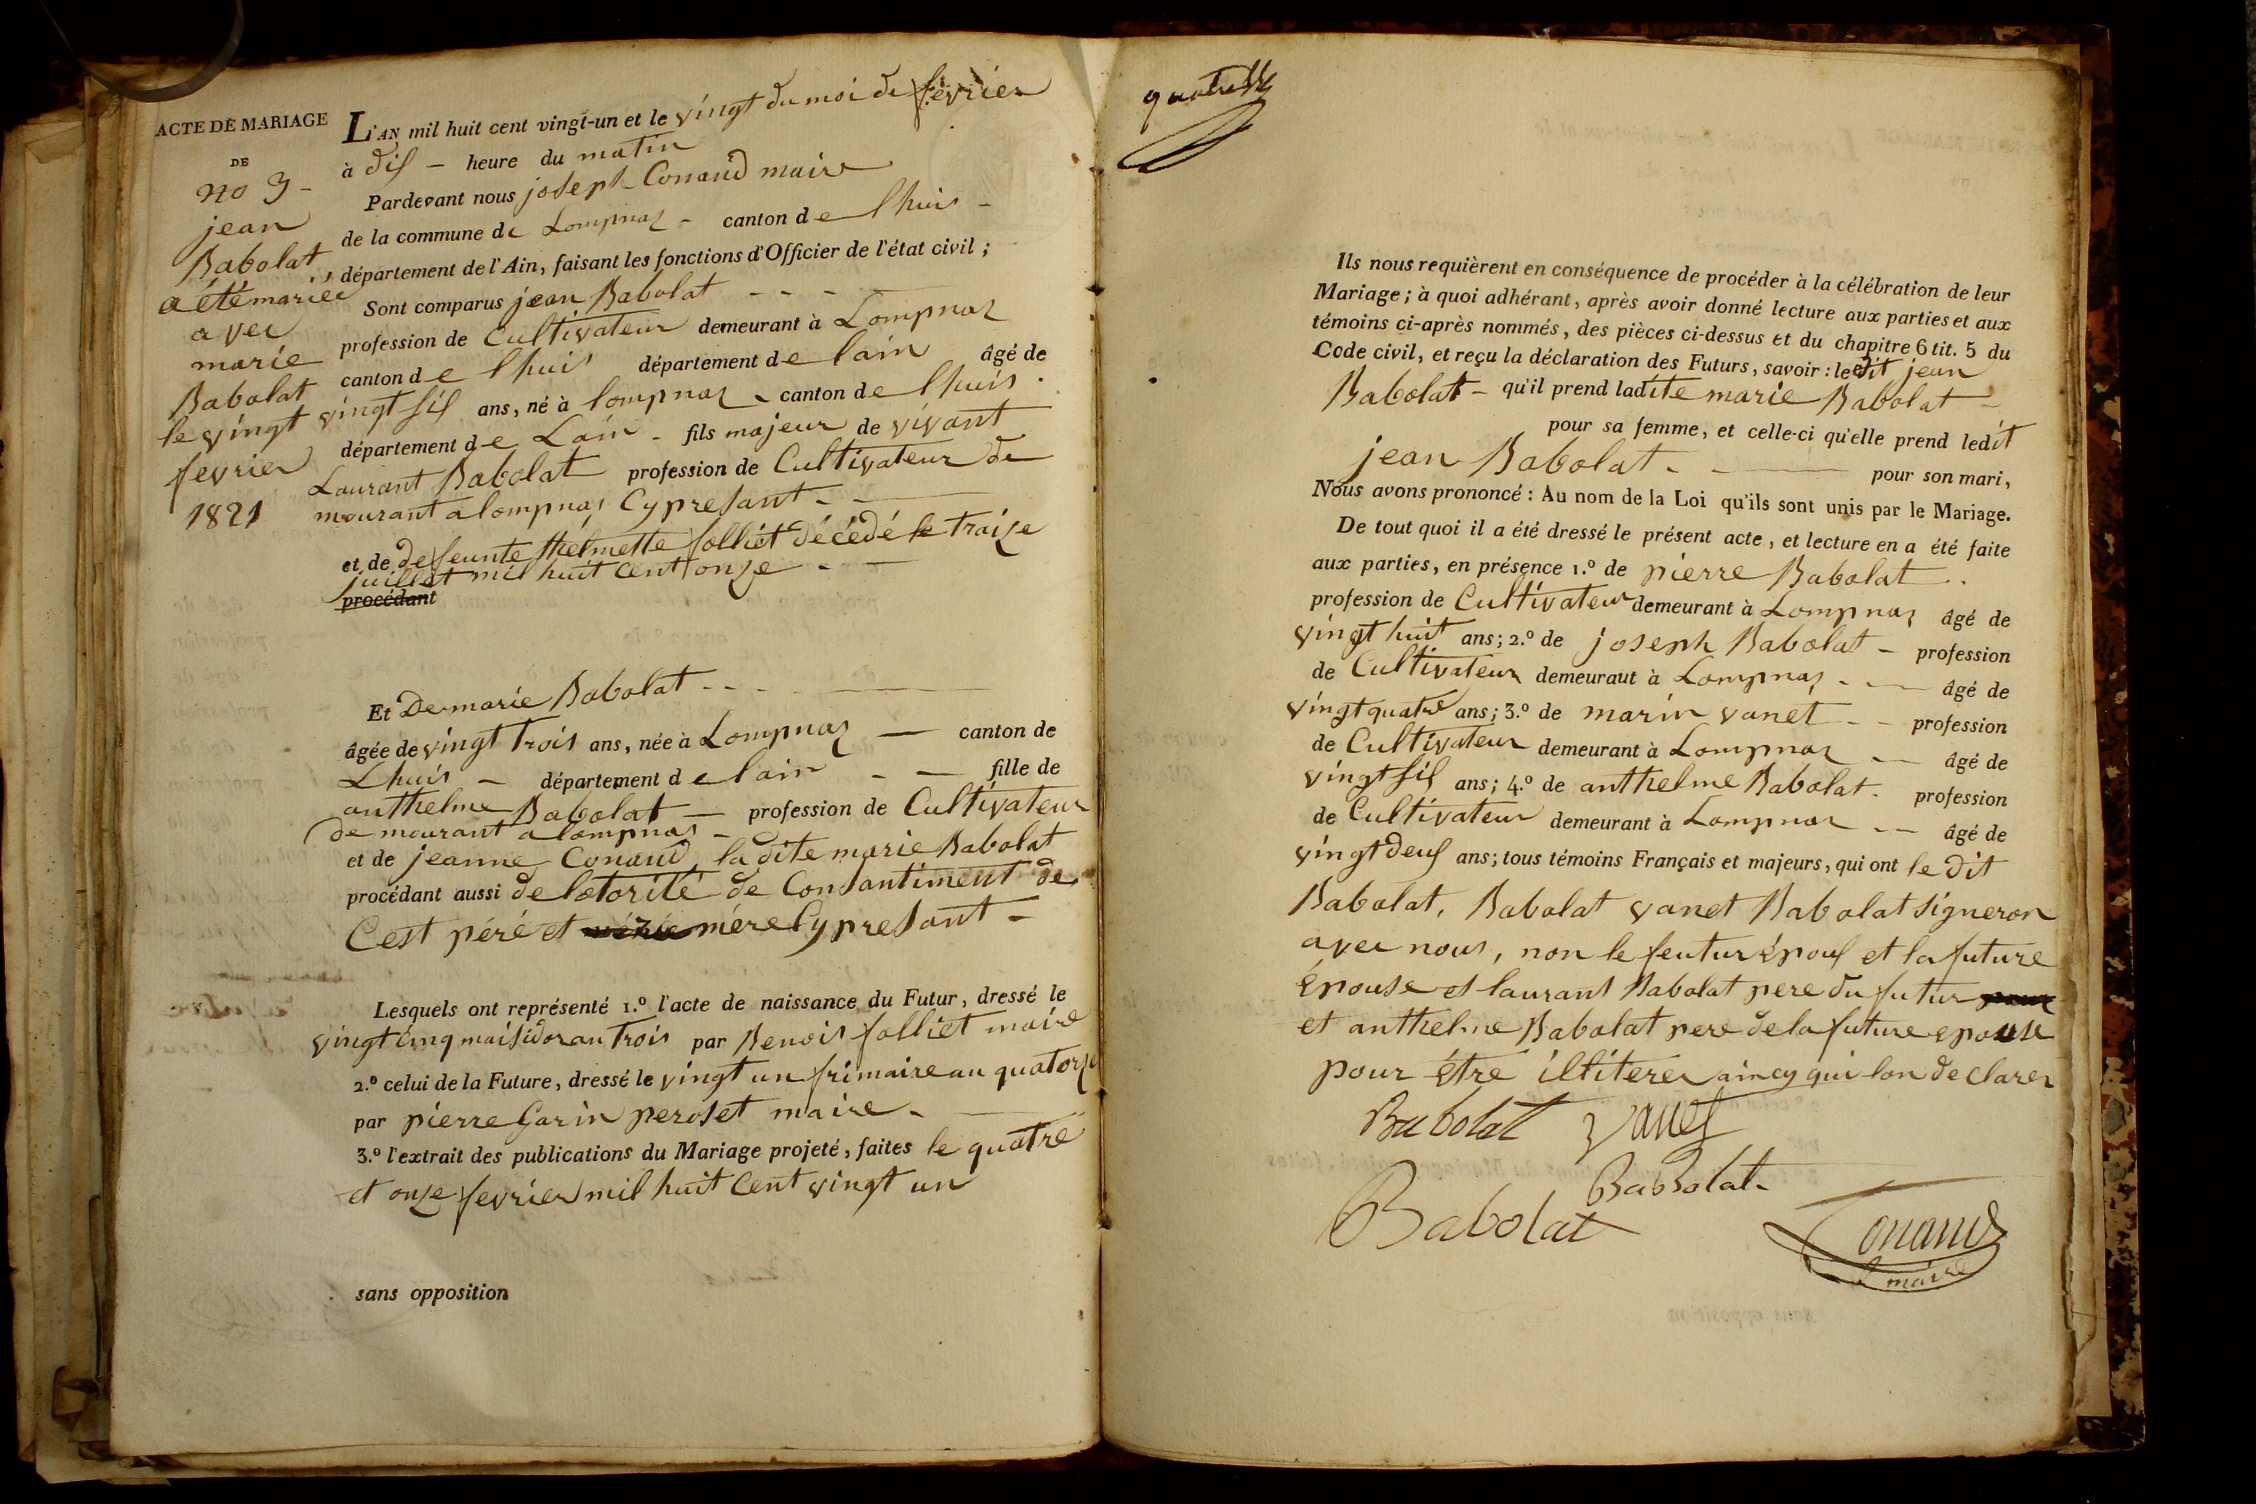 ACTE DE MARIAGE
DE
no 3 -
jean
Babolat,
a été mariée
avec
marie
Babolat
le vingt
fevrier
1821
L'AN mil huit cent vingt-un et le vingt du moi de février
à dis - heure du matin
Pardevant nous joseph Conand maire
de la commune de Lompnas - canton de lhuis -
département de l'Ain, faisant les fonctions d'Officier de l'état civil ;
Sont comparus jean Babolat - - -
profession de Cultivateur demeurant à Lompnas
canton de lhuis département de lain âgé de
vingt sis ans, né à lompnas - canton de lhuis.
département de Lain - fils majeur de vivant
Laurant Babolat profession de Cultivateur de
mourant a lompnas Cypresant - -
et de defeunte thelmette folliet décédé le traise
juillet mil huit cent onze - -
procédant
Et De marie Babolat - - -
âgée de vingt trois ans, née à Lompnas — canton de
Lhuis - département de lain - — fille de
anthelme Babolat — profession de Cultivateur
de mourant a lompnas -
et de jeanne Conand, la dite marie Babolat
procédant aussi de lotorité de Consantiment de
Cest péré et mére Cypresant -
Lesquels ont représenté 1.º l'acte de naissance du Futur, dressé le
vingt cinq maisidor an trois par Benois folliet maire
2.º celui de la Future, dressé le vingt un frimaire an quatorze
par pierre Garin peroset maire -
3.º l'extrait des publications du Mariage projeté, faites le quatre
et onze fevrier mil huit cent vingt un
sans opposition
Ils nous requièrent en conséquence de procéder à la célébration de leur
Mariage ; à quoi adhérant, après avoir donné lecture aux parties et aux
témoins ci-après nommés, des pièces ci-dessus et du chapitre 6 tit. 5 du
Code civil, et reçu la déclaration des Futurs, savoir : ledit jean
Babolat - qu'il prend ladite marie Babolat -
pour sa femme, et celle-ci qu'elle prend ledit
jean Babolat - — pour son mari,
Nous avons prononcé : Au nom de la Loi qu'ils sont unis par le Mariage.
De tout quoi il a été dressé le présent acte, et lecture en a été faite
aux parties, en présence 1.º de pierre Babolat .
profession de Cultivateur demeurant à Lompnas âgé de
vingt huit ans ; 2.º de joseph Babolat - profession
de Cultivateur demeurant à Lompnas - — âgé de
vingt quatre ans ; 3.º de marin vanet - - profession
de Cultivateur demeurant à Lompnas — âgé de
vingt sis ans ; 4.º de anthelme Babolat. profession
de Cultivateur demeurant à Lompnas - — âgé de
vingt deus ans ; tous témoins Français et majeurs, qui ont le dit
Babolat, Babolat vanet Babolat signeron
avec nous, non le feutur épous et la future
épouse et laurant Babolat pere du futur
et anthelme Babolat pere de la future epouse
pour étre illiterer aincy qui lon declarer
Babolat vanet
Babolat
Babolat
Conand
maire